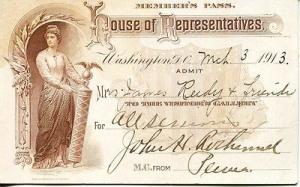 MEMBER'S PASS.
House of Representatives.
Washington, D.C. Mch 3 1913.
ADMIT
Mrs James Rudy & Friends
TO THE MEMBER'S GALLERY
For All sessions
John H. Rothermel
M.C. FROM Penna.